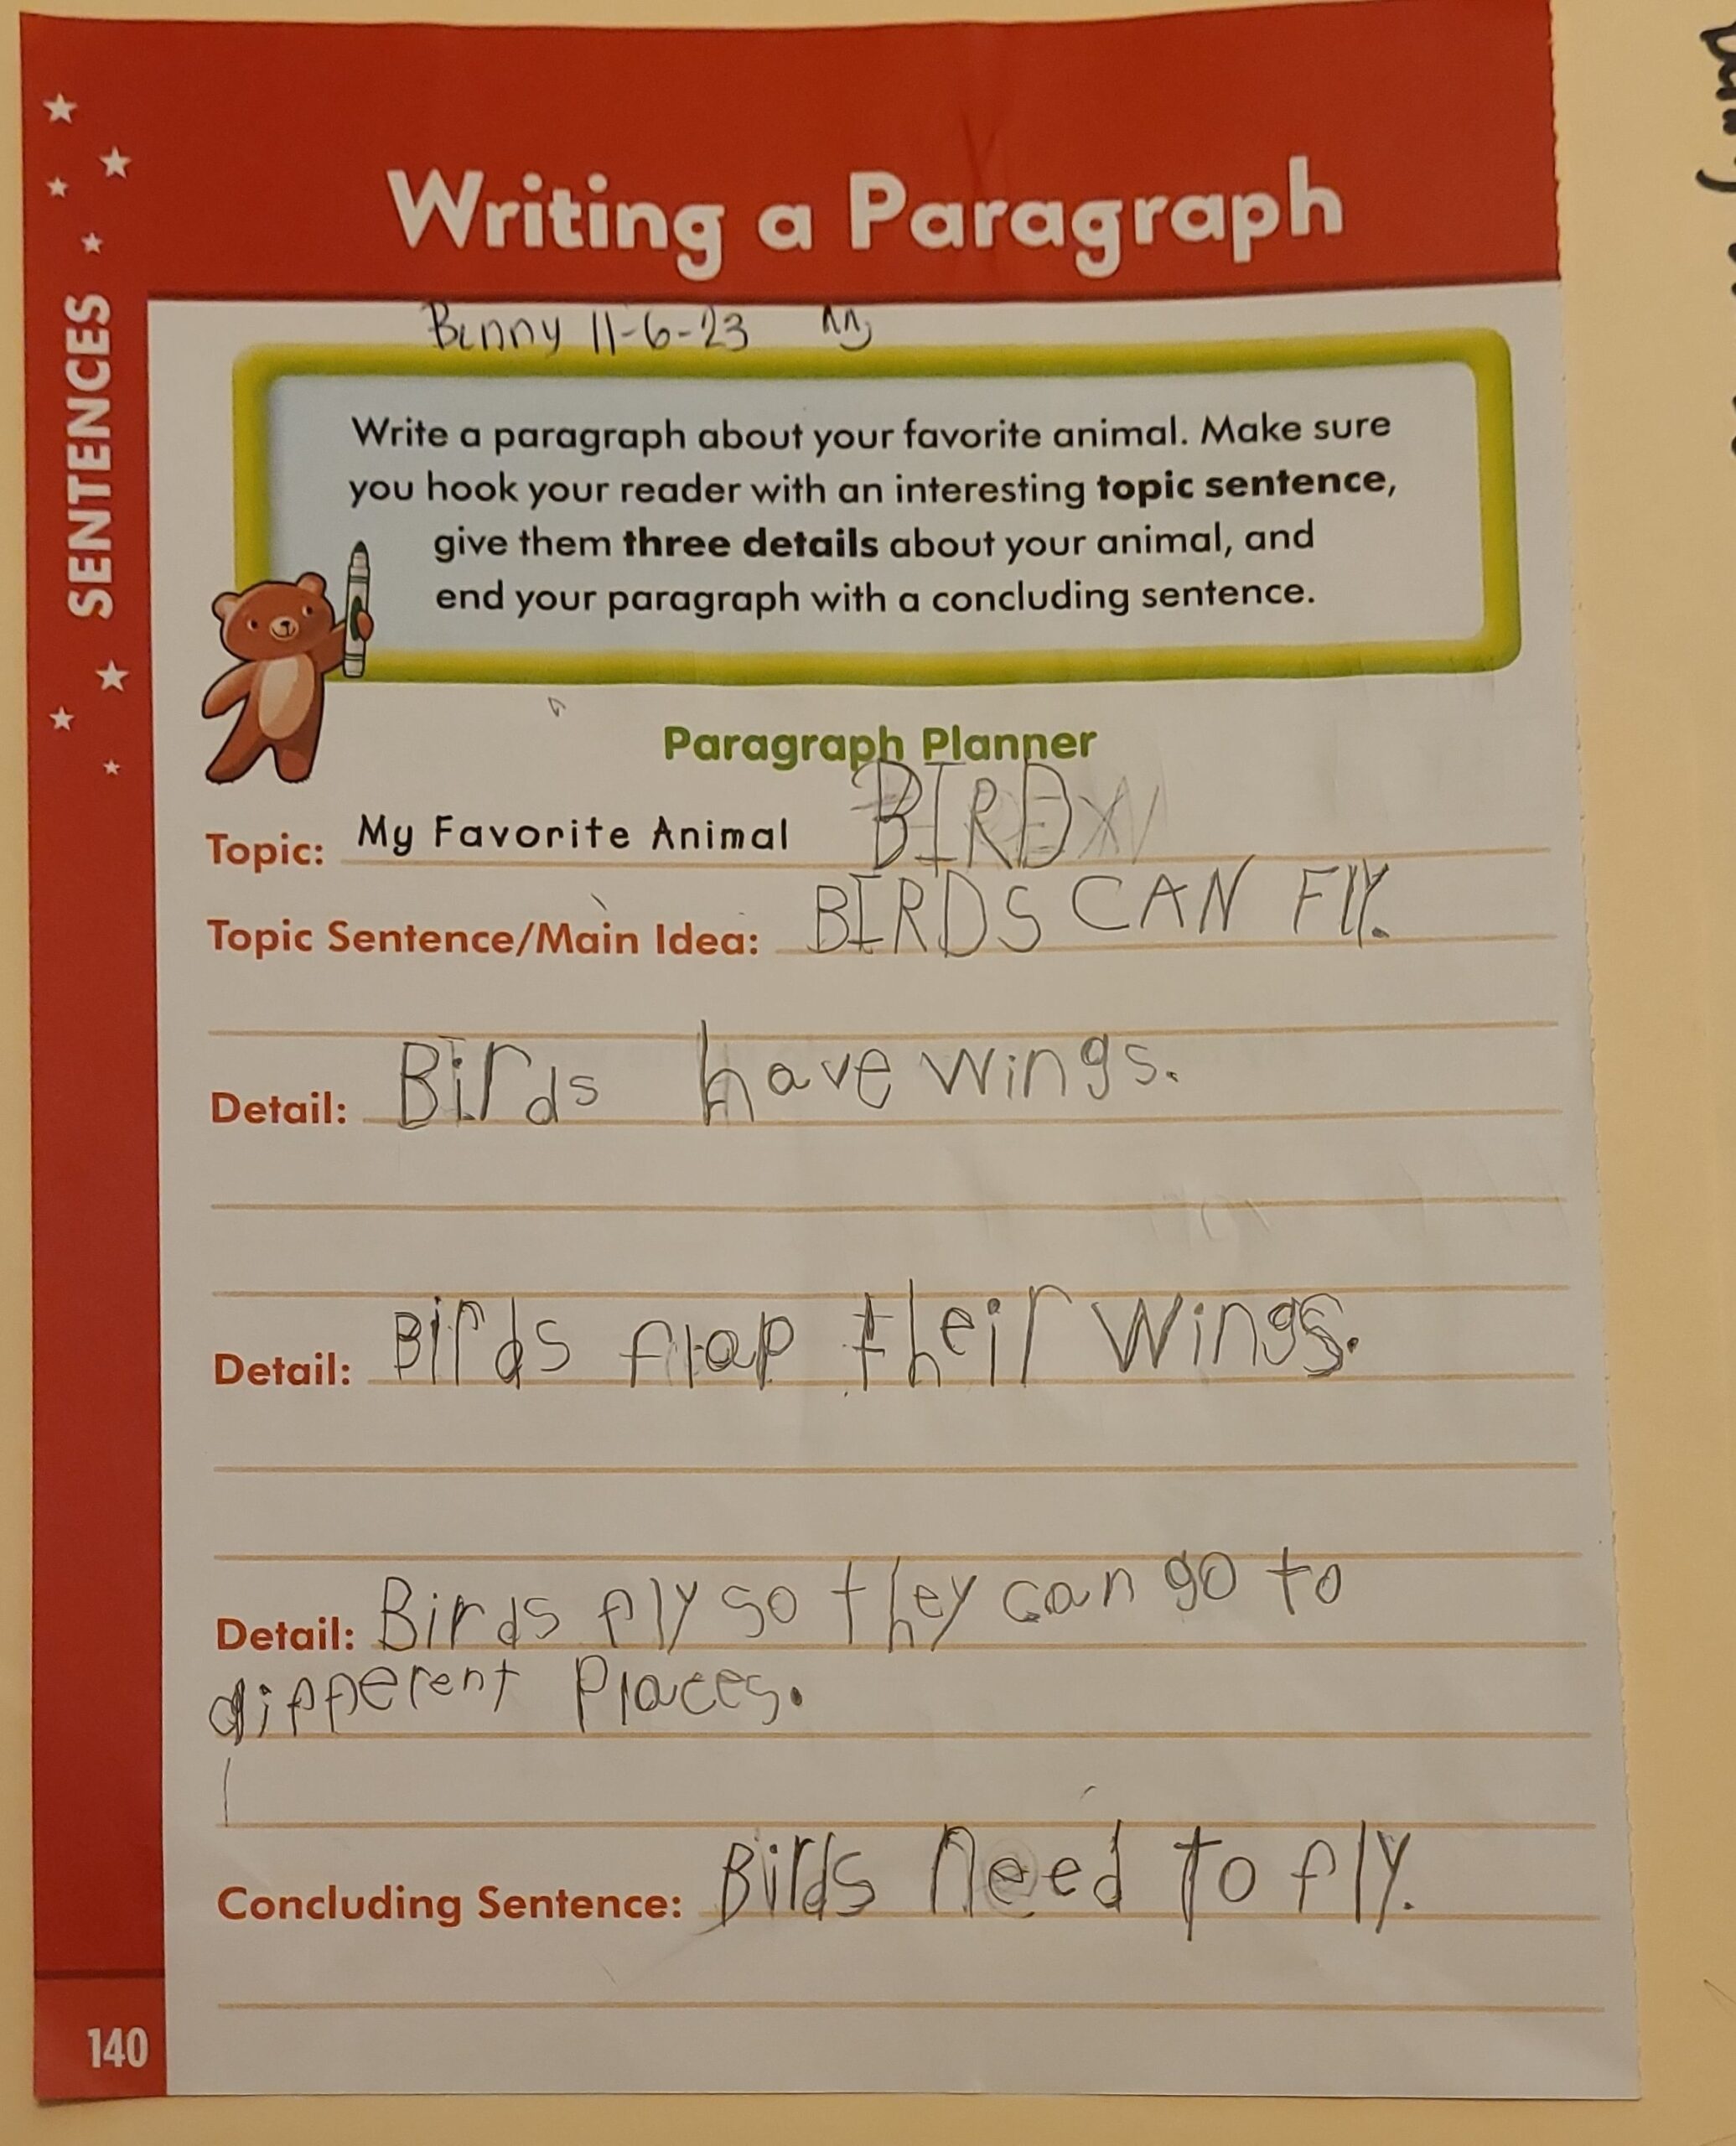 Writing a Paragraph
SENTENCES
Benny 11-6-23
Write a paragraph about your favorite animal. Make sure
you hook your reader with an interesting topic sentence,
give them three details about your animal, and
end your paragraph with a concluding sentence.
Paragraph Planner
Topic: My Favorite Animal BIRD
Topic Sentence/Main Idea: BIRDS CAN FLY.
Detail: Birds have wings.
Detail: Birds flap their wings.
Detail: Birds fly so they can go to
different Places.
Concluding Sentence: Birds Need to fly.
140